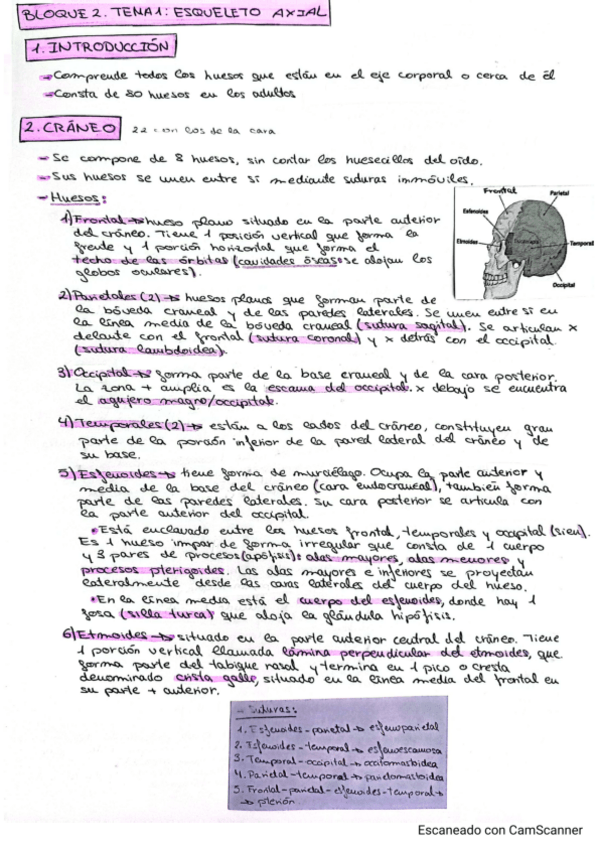 BLOQUE 2. TEMA 1: ESQUELETO AXIAL
1. INTRODUCCIÓN
→ Comprende todos los huesos que están en el eje corporal o cerca de él
→ Consta de 80 huesos en los adultos
2. CRÁNEO 22 con los de la cara
→ Se compone de 8 huesos, sin contar los huesecillos del oído.
→ Sus huesos se unen entre sí mediante suturas inmóviles.
→ Huesos:
1) Frontal → hueso plano situado en la parte anterior
del cráneo. Tiene 1 posición vertical que forma la
frente y 1 porción horizontal que forma el
techo de las órbitas (cavidades óseas: se alojan los
globos oculares).
Frontal
Parietal
Esfenoides
Etmoides
Temporal
Occipital
2) Parietales (2) → huesos planos que forman parte de
la bóveda craneal y de las paredes laterales. Se unen entre sí en
la línea media de la bóveda craneal (sutura sagital). Se articulan x
delante con el frontal (sutura coronal) y x detrás con el occipital
(sutura lambdoidea).
3) Occipital → forma parte de la base craneal y de la cara posterior.
La zona + amplia es la escama del occipital. x debajo se encuentra
el agujero magno/occipital.
4) Temporales (2) → están a los lados del cráneo, constituyen gran
parte de la porción inferior de la pared lateral del cráneo y de
su base.
5) Esfenoides → tiene forma de murciélago. Ocupa la parte anterior y
media de la base del cráneo (cara endocraneal), también forma
parte de las paredes laterales. Su cara posterior se articula con
la parte anterior del occipital.
• Está enclavado entre los huesos frontal, temporales y occipital (sien).
Es 1 hueso impar de forma irregular que consta de 1 cuerpo
y 3 pares de procesos (apófisis): alas mayores, alas menores y
procesos pterigoides. Las alas mayores e inferiores se proyectan
lateralmente desde las caras laterales del cuerpo del hueso.
• En la línea media está el cuerpo del esfenoides, donde hay 1
fosa (silla turca) que aloja la glándula hipófisis.
6) Etmoides → situado en la parte anterior central del cráneo. Tiene
1 porción vertical llamada lámina perpendicular del etmoides, que
forma parte del tabique nasal y termina en 1 pico o cresta
denominado crista galli, situado en la línea media del frontal en
su parte + anterior.
→ Suturas:
1. Esfenoides-parietal → esfenoparietal
2. Esfenoides-temporal → esfenoescamosa
3. Temporal-occipital → occitomastoidea
4. Parietal-temporal → parietomastoidea
5. Frontal-parietal-esfenoides-temporal →
→ pterión
Escaneado con CamScanner